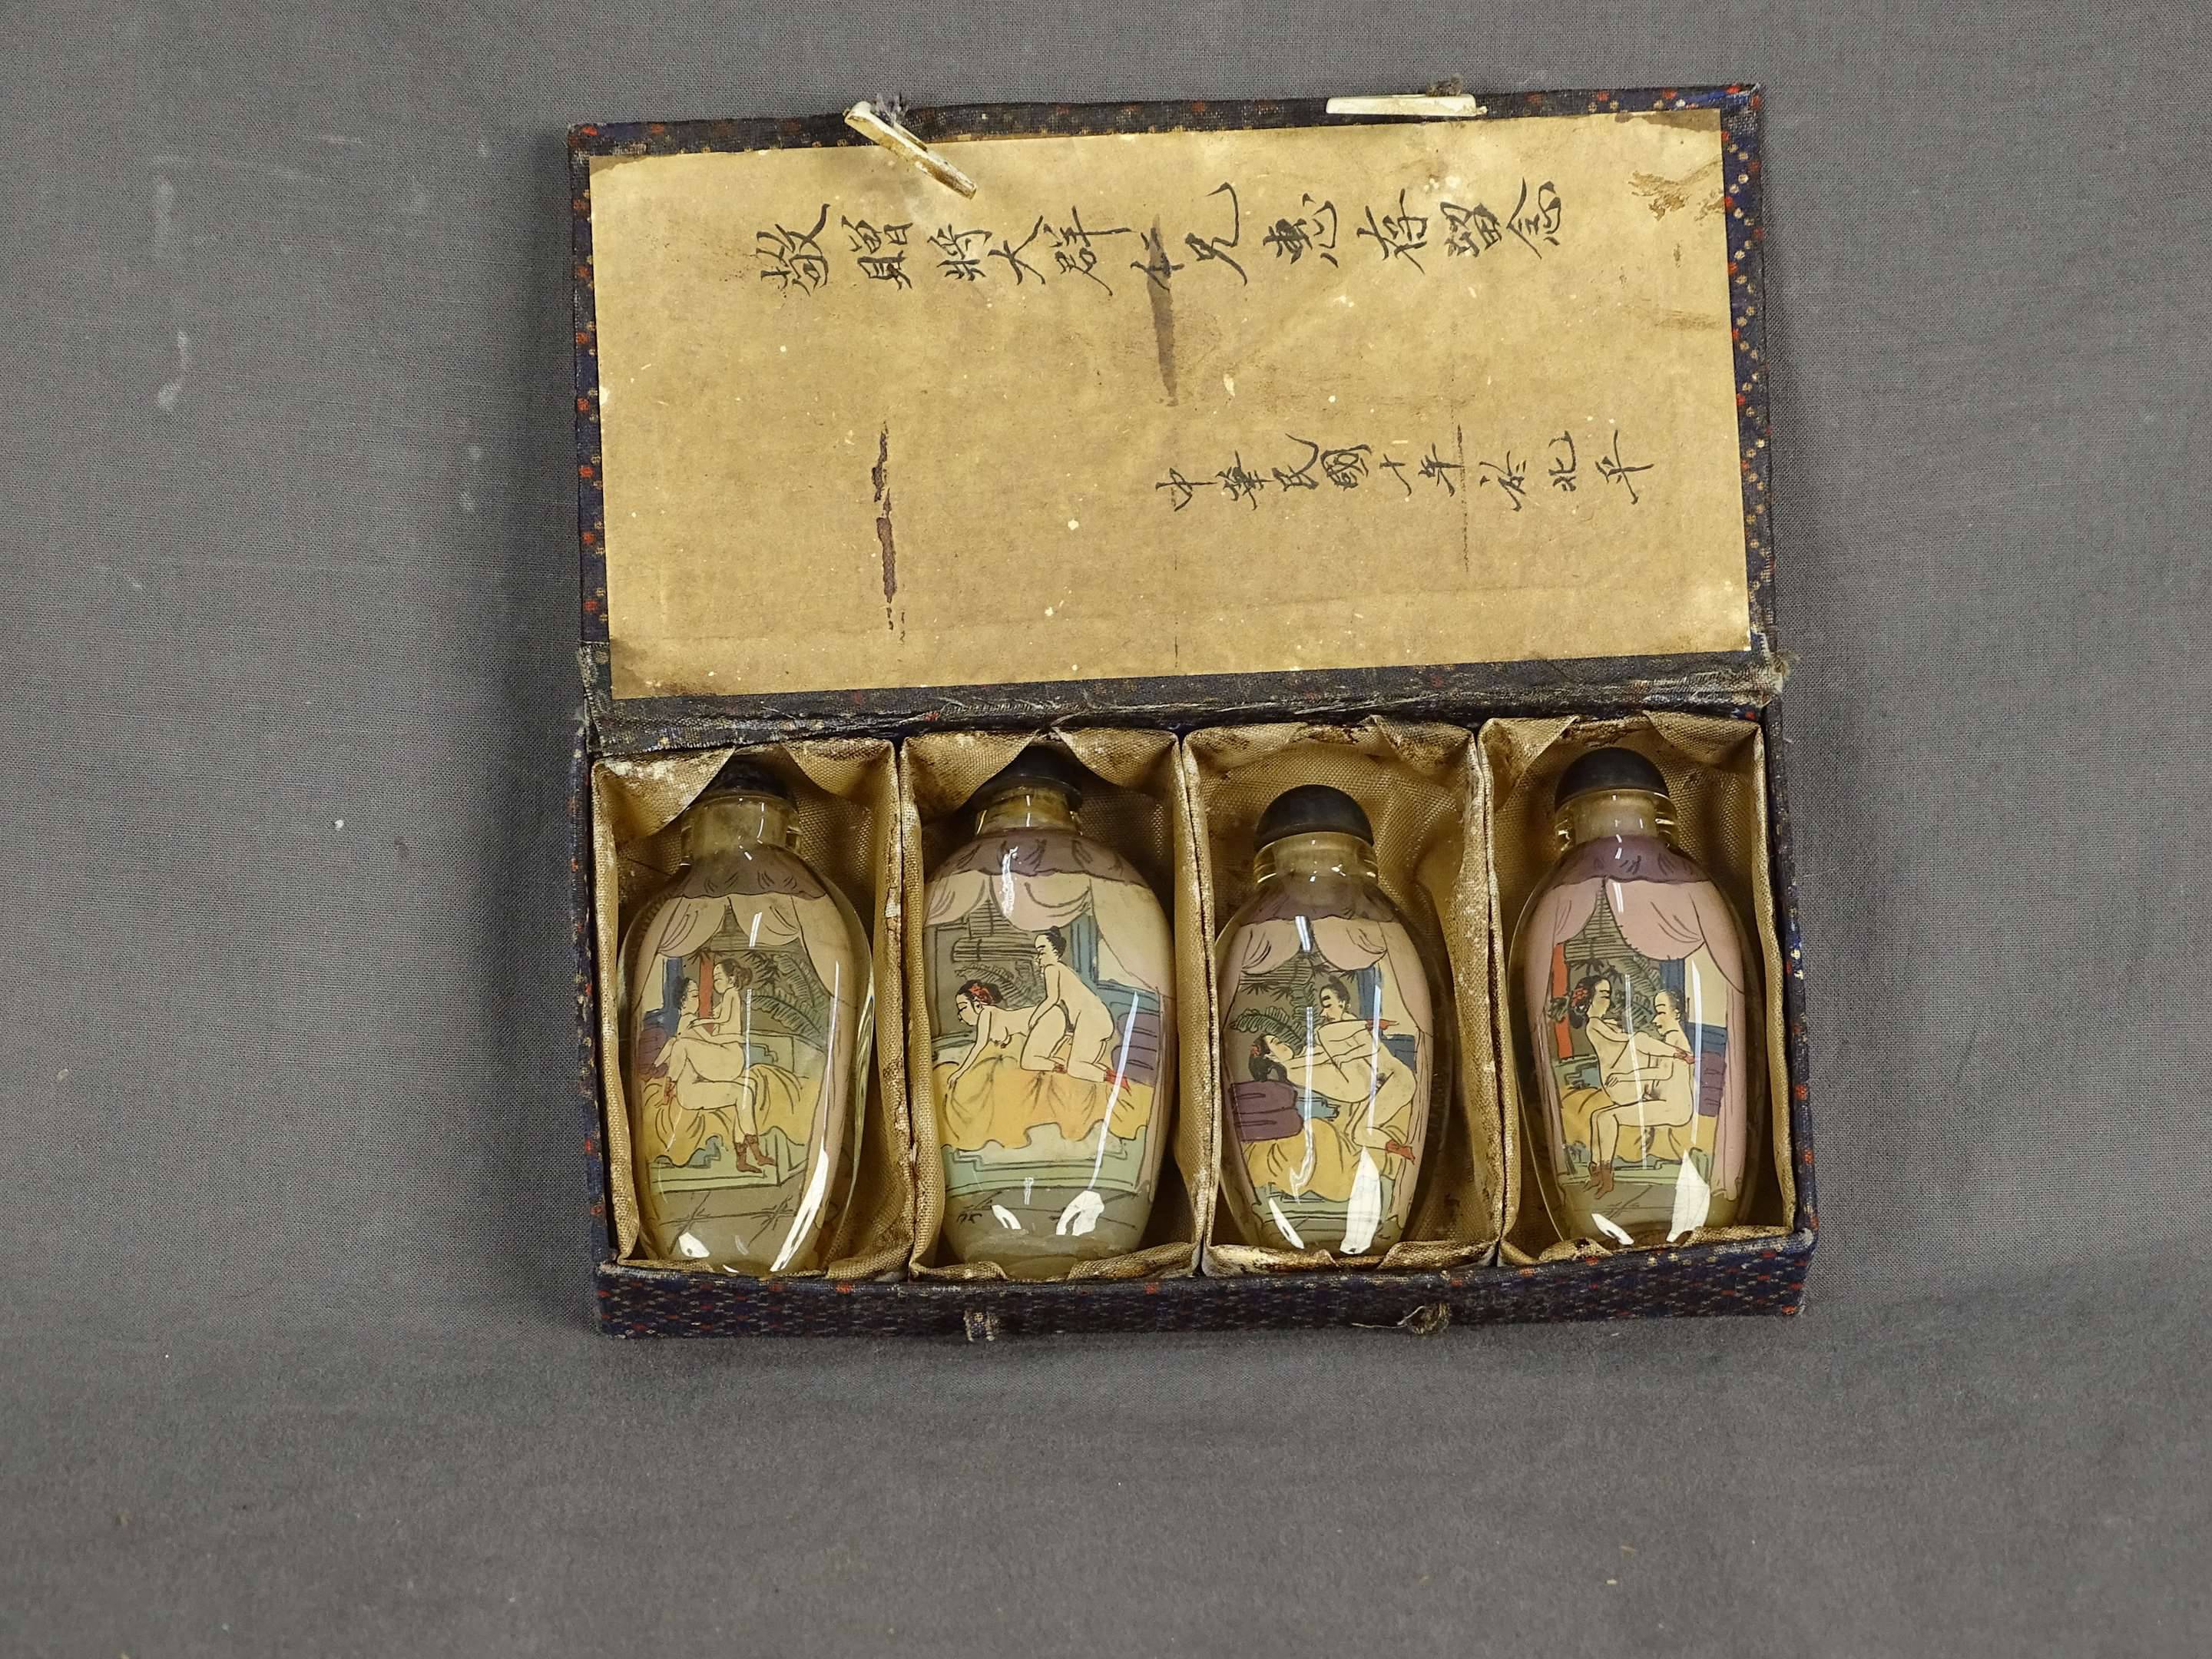 敬贈將大群仁兄惠存留念
中華民國十年於北平